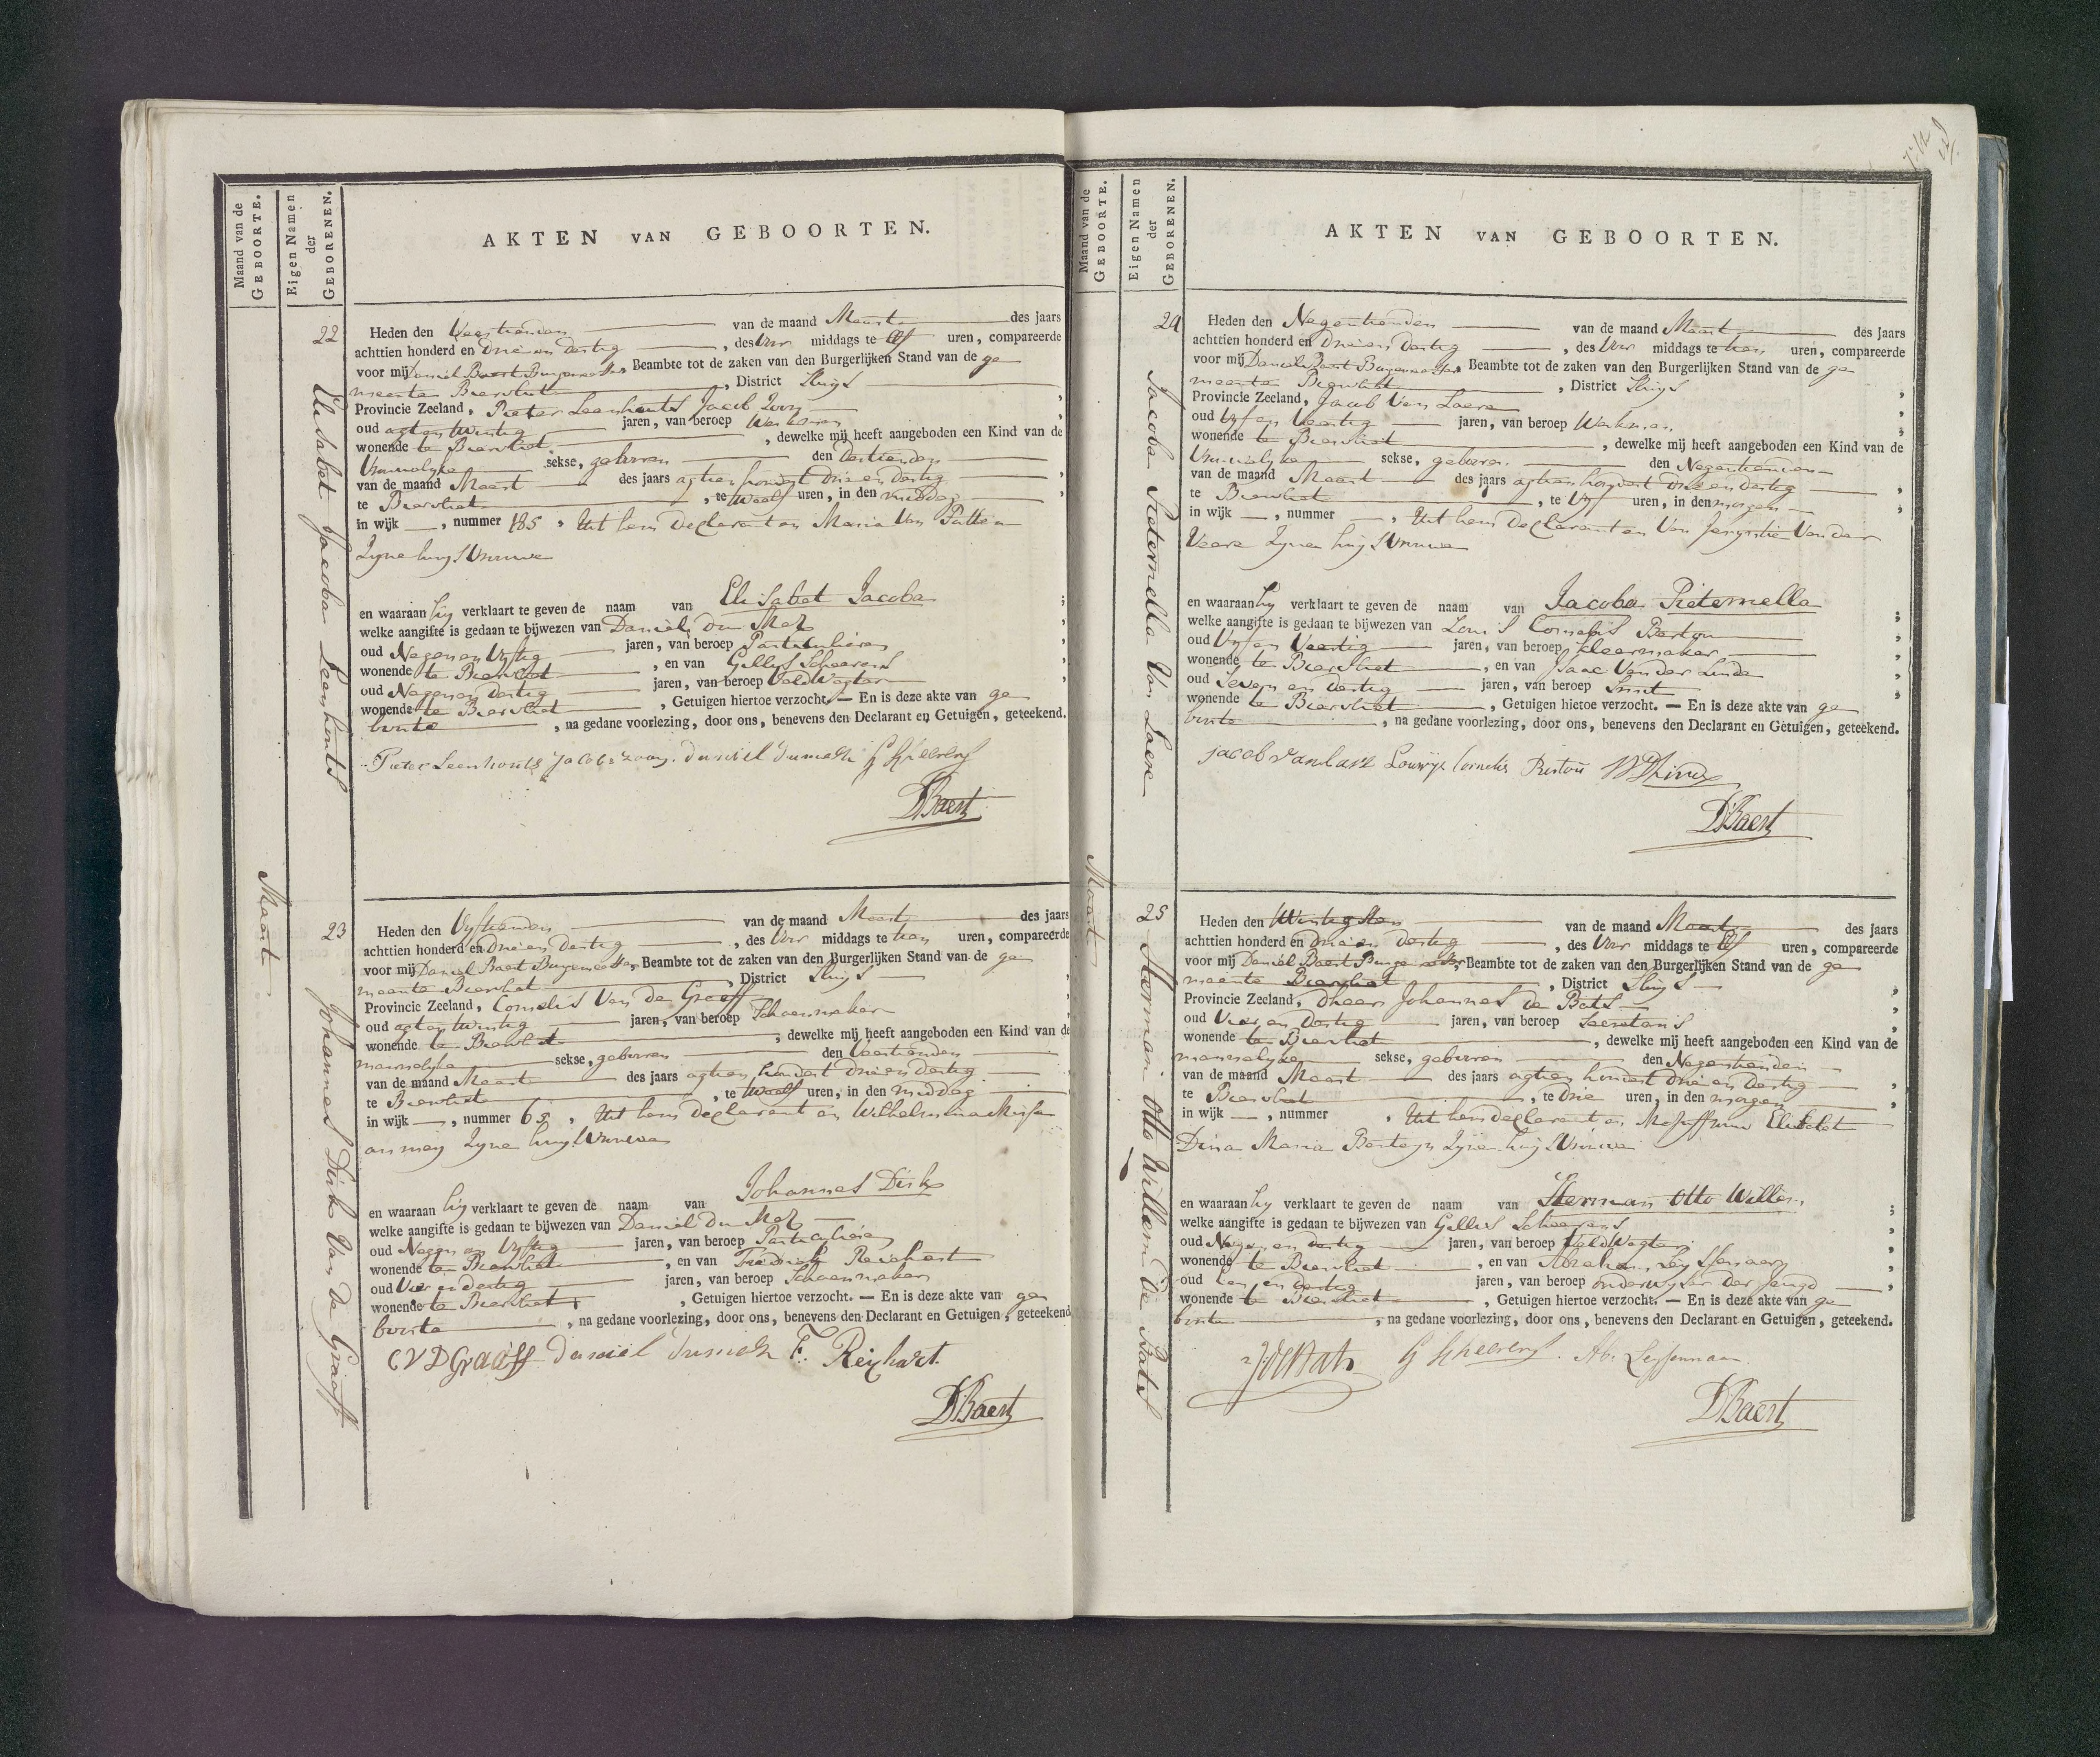 Maand van de
GEBOORTE.
Eigen Namen
der
GEBORENEN.
AKTEN VAN GEBOORTEN.
Maart
22
Elisabet Jacoba Leenhouts
Heden den Veertienden van de maand Maart des jaars
achttien honderd en drie en dertig, des voor middags te elf uren, compareerde
voor mij Daniel Baert Burgemeester Beambte tot de zaken van den Burgerlijken Stand van de ge
meente Biervliet, District Sluys,
Provincie Zeeland, Pieter Leenhouts Jacob Zoon,
oud agt en twintig jaren, van beroep
wonende te Biervliet, dewelke mij heeft aangeboden een Kind van de
Vrouwelyke sekse, geboren den dertienden
van de maand Maart des jaars agtien hondert drie en dertig,
te Biervliet, te twaalf uren, in den middag,
in wijk —, nummer 185, Uit hem declarant en Maria Van Putte
Zyne huysvrouwe
en waaraan hij verklaart te geven de naam van Elisabet Jacoba;
welke aangifte is gedaan te bijwezen van Daniel du Mez,
oud Negen en Vyftig jaren, van beroep Particulieren,
wonende te Biervliet, en van Gillis Scheerens,
oud Negen en dertig jaren, van beroep Veldwagter,
wonende te Biervliet, Getuigen hiertoe verzocht. — En is deze akte van ge
boorte, na gedane voorlezing, door ons, benevens den Declarant en Getuigen, geteekend.
Pieter Leenhouts Jacobs zoon. daniel dumez G Scheerens
D Baert
23
Johannes Dirk Van de Graaff
Heden den Vyftienden van de maand Maart des jaars
achttien honderd en drie en dertig, des voor middags te tien uren, compareerde
voor mij Daniel Baert Burgemeester Beambte tot de zaken van den Burgerlijken Stand van de ge
meente Biervliet, District Sluys,
Provincie Zeeland, Cornelis Van de Graeff,
oud agt en twintig jaren, van beroep Schoenmaker
wonende te Biervliet, dewelke mij heeft aangeboden een Kind van de
mannelyke sekse, geboren den Veertienden
van de maand Maart des jaars agtien hondert drie en dertig
te Biervliet, te twaalf uren, in den middag
in wijk —, nummer 65, Uit hem declarant en Wilhelmina
Zyne huysvrouwe
en waaraan hij verklaart te geven de naam van Johannes Dirk
welke aangifte is gedaan te bijwezen van Daniel du Mez
oud Negen en Vyftig jaren, van beroep Particulieren
wonende te Biervliet, en van Fredrik Reichert
oud Vier en dertig jaren, van beroep Schoenmaker
wonende te Biervliet, Getuigen hiertoe verzocht. — En is deze akte van ge
boorte, na gedane voorlezing, door ons, benevens den Declarant en Getuigen, geteekend
C V D Graaff daniel dumez F. Reijhart.
D Baert
Maand van de
GEBOORTE.
Eigen Namen
der
GEBORENEN.
AKTEN VAN GEBOORTEN.
Maart
24
Jacoba Pieternella Van Laere
Heden den Negentienden van de maand Maart des jaars
achttien honderd en drie en dertig, des voor middags te tien uren, compareerde
voor mij Daniel Baert Burgemeester Beambte tot de zaken van den Burgerlijken Stand van de ge
meente Biervliet, District Sluys,
Provincie Zeeland, Jacob Van Laere,
oud Vyf en Veertig jaren, van beroep Werkman,
wonende te Biervliet, dewelke mij heeft aangeboden een Kind van de
Vrouwelyke sekse, geboren den Negentienden
van de maand Maart des jaars agtien hondert drie en dertig,
te Biervliet, te Vyf uren, in den morgen,
in wijk —, nummer —, Uit hem declarant en Van Van der
Veere Zynen huysvrouwe
en waaraan hy verklaart te geven de naam van Jacoba Pieternella;
welke aangifte is gedaan te bijwezen van Louis Cornelis,
oud Vyf en Veertig jaren, van beroep Kleermaker,
wonende te Biervliet, en van Isaac Van der Linde,
oud Seven en dertig jaren, van beroep Smit,
wonende te Biervliet, Getuigen hietoe verzocht. — En is deze akte van ge
boorte, na gedane voorlezing, door ons, benevens den Declarant en Getuigen, geteekend.
jacob van Lare Louwijs Cornelis
D Baert
25
Herman Otto Willem de Bats
Heden den Twintigsten van de maand Maart des jaars
achttien honderd en drie en dertig, des voor middags te elf uren, compareerde
voor mij Daniel Baert Burgemeester Beambte tot de zaken van den Burgerlijken Stand van de ge
meente Biervliet, District Sluys
Provincie Zeeland, dheer Johannes de Bats,
oud Vier en dertig jaren, van beroep Secretaris,
wonende te Biervliet, dewelke mij heeft aangeboden een Kind van de
mannelyke sekse, geboren den Negentienden
van de maand Maart des jaars agtien hondert drie en dertig,
te Biervliet, te drie uren, in den morgen,
in wijk —, nummer, Uit hem declarant en Mejuffrouw Elisabet
Dina Maria Zyne huysvrouwe
en waaraan hy verklaart te geven de naam van Herman Otto Willem;
welke aangifte is gedaan te bijwezen van Gillis Scheerens,
oud Negen en dertig jaren, van beroep Veldwagter,
wonende te Biervliet, en van Abraham Leyssenaar,
oud en dertig jaren, van beroep onderwyser der jeugd,
wonende te Biervliet, Getuigen hiertoe verzocht. — En is deze akte van ge
boorte, na gedane voorlezing, door ons, benevens den Declarant en Getuigen, geteekend.
J de Bats G Scheerens. Ab. Leyssenaar
D Baert